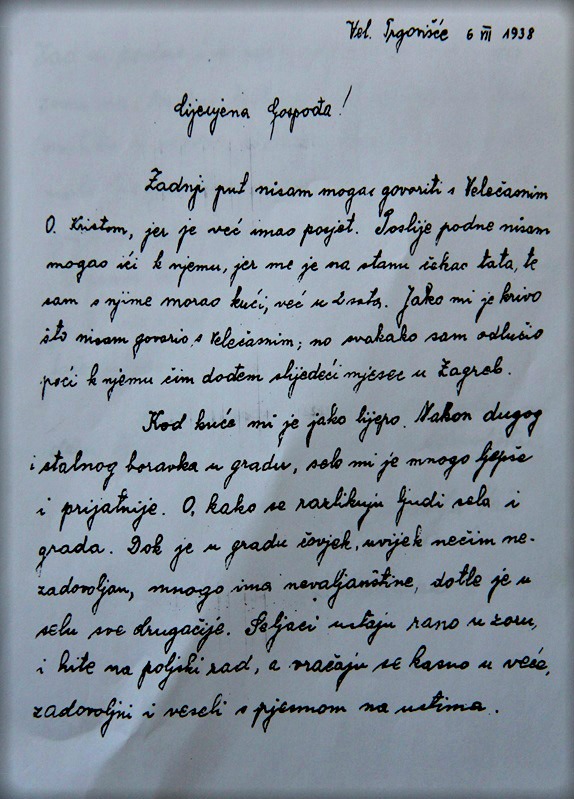 Vel. Trgovišće 6 VII 1938
Cijenjena Gospođa!
Zadnji put nisam mogao govoriti s Velečasnim
O. Kristom, jer je već imao posjet. Poslije podne nisam
mogao ići k njemu, jer me je na stanu čekao tata, te
sam s njime morao kući, već u 2 sata. Jako mi je krivo
što nisam govorio s Velečasnim; no svakako sam odlučio
poći k njemu čim dođem slijedeći mjesec u Zagreb.
Kod kuće mi je jako lijepo. Nakon dugog
i stalnog boravka u gradu, selo mi je mnogo ljepše
i prijatnije. O, kako se razlikuju ljudi sela i
grada. Dok je u gradu čovjek, uvijek nečim ne-
zadovoljan, mnogo ima nevaljanštine, dotle je u
selu sve drugačije. Seljaci ustaju rano u zoru,
i hite na poljski rad, a vraćaju se kasno u veče,
zadovoljni i veseli s pjesmom na ustima.